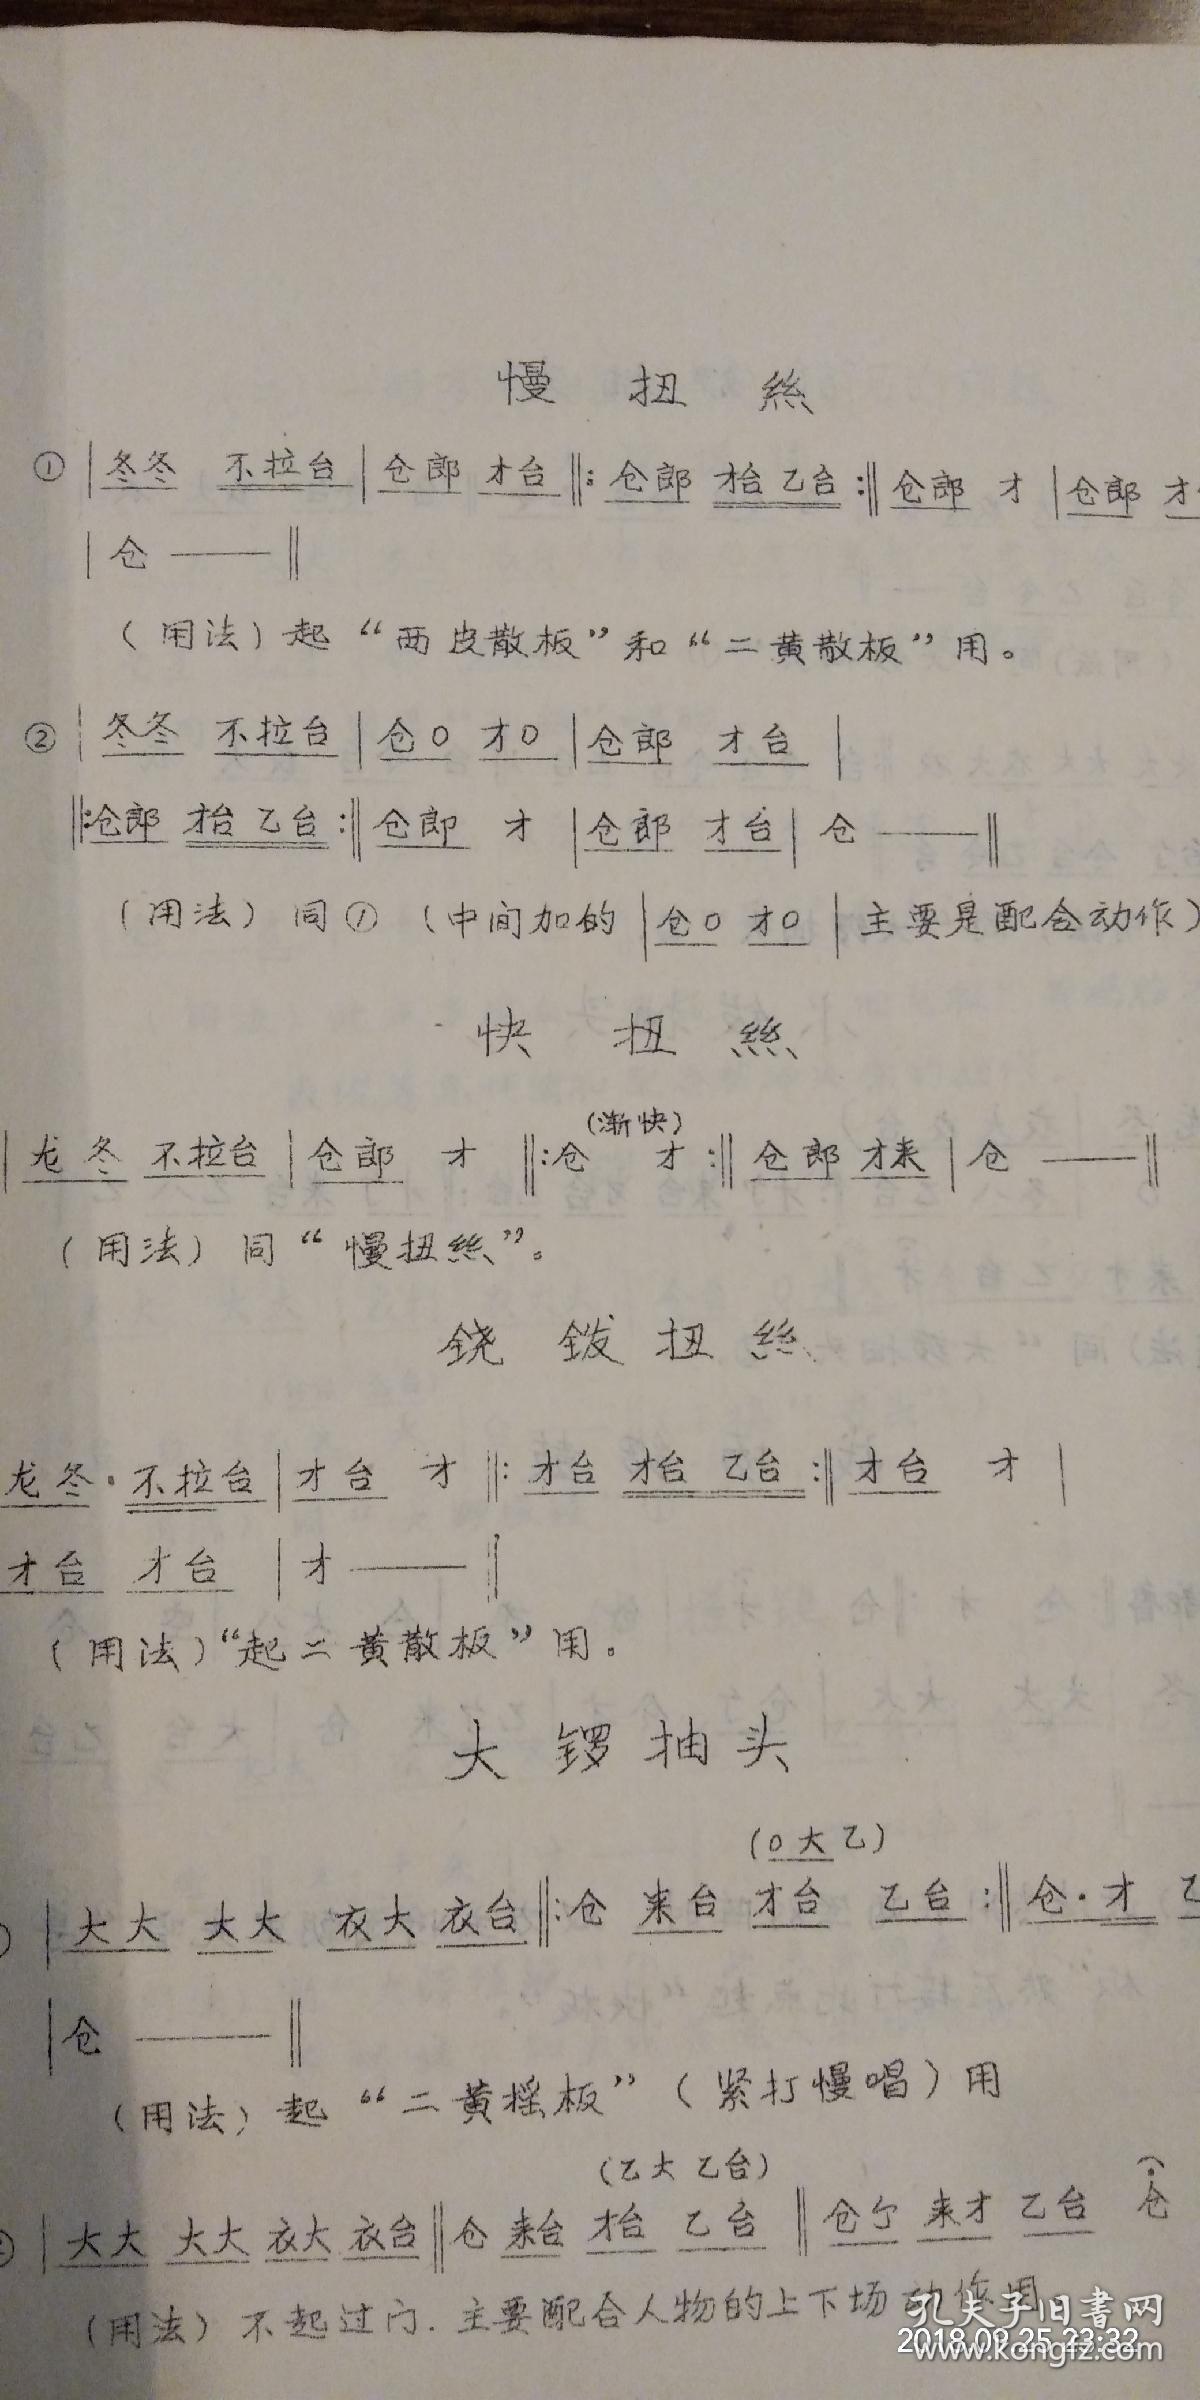 慢 扭 絲
① | 冬冬 不拉台 | 仓郎 才台 ‖: 仓郎 才台 乙台 :‖ 仓郎 才 | 仓郎 才
| 仓 —— ‖
(用法) 起“西皮散板”和“二黄散板”用。
② | 冬冬 不拉台 | 仓0 才0 | 仓郎 才台 |
‖: 仓郎 才台 乙台 :‖ 仓郎 才 | 仓郎 才台 | 仓 —— ‖
(用法) 同① (中间加的 | 仓0 才0 | 主要是配合动作)
快 扭 絲
(渐快)
| 龙冬 不拉台 | 仓郎 才 ‖: 仓 才 :‖ 仓郎 才来 | 仓 —— ‖
(用法) 同“慢扭絲”。
铙 钹 扭 絲
龙冬· 不拉台 | 才台 才 ‖: 才台 才台 乙台 :‖ 才台 才 |
才台 才台 | 才 —— ‖
(用法)“起二黄散板”用。
大 锣 抽 头
(0大乙)
| 大大 大大 衣大 衣台 ‖: 仓 来台 才台 乙台 :‖ 仓·才 乙
| 仓 —— ‖
(用法) 起“二黄摇板”(紧打慢唱)用
(乙大 乙台)
| 大大 大大 衣大 衣台 ‖ 仓 来台 才台 乙台 ‖ 仓 来才 乙台 仓
(用法) 不起过门. 主要配合人物的上下场动作用
孔夫子旧书网
2018.09.25 23:32
www.kongfz.com